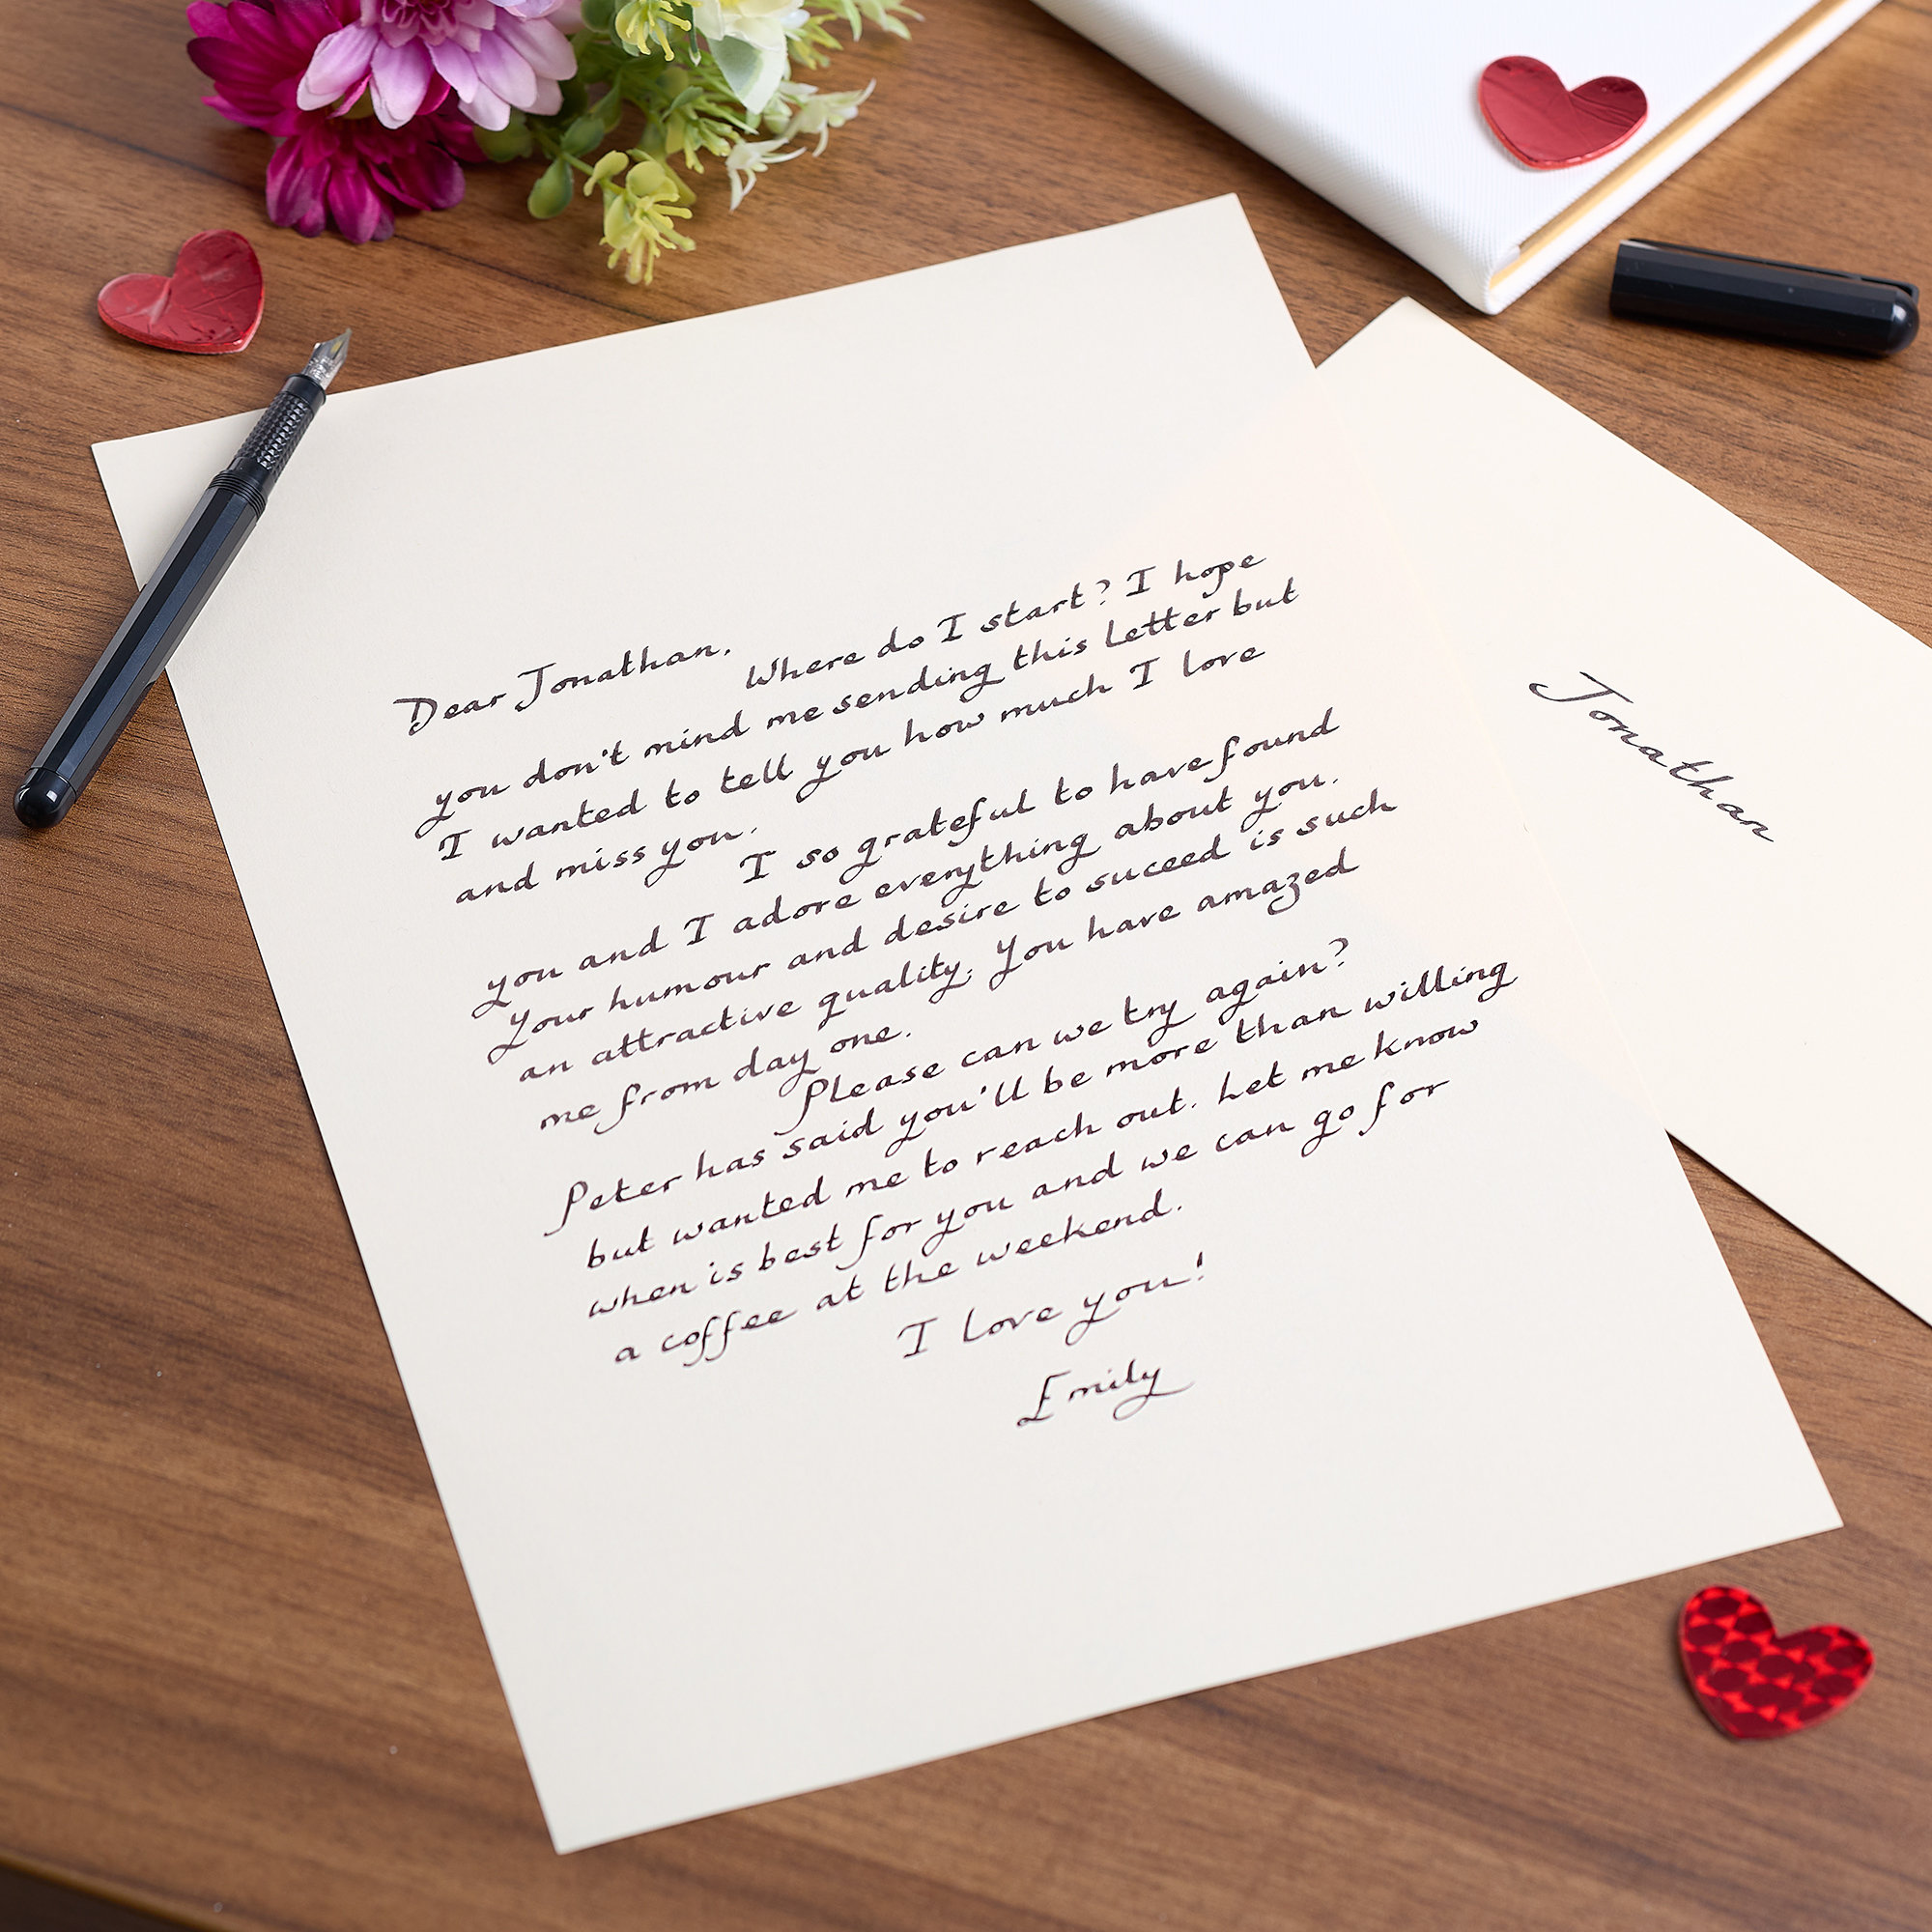 Dear Jonathan,
Where do I start? I hope
you don't mind me sending this letter but
I wanted to tell you how much I love
and miss you.
I so grateful to have found
you and I adore everything about you.
Your humour and desire to suceed is such
an attractive quality. You have amazed
me from day one.
Please can we try again?
Peter has said you'll be more than willing
but wanted me to reach out. Let me know
when is best for you and we can go for
a coffee at the weekend.
I love you!
Emily
Jonathan